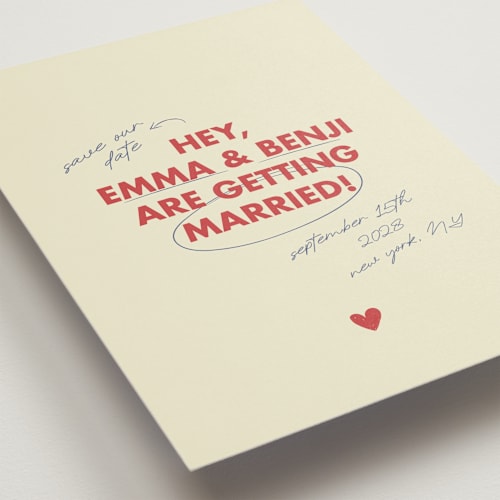 save our
date
HEY,
EMMA & BENJI
ARE GETTING
MARRIED!
september 15th
2028
new york, NY